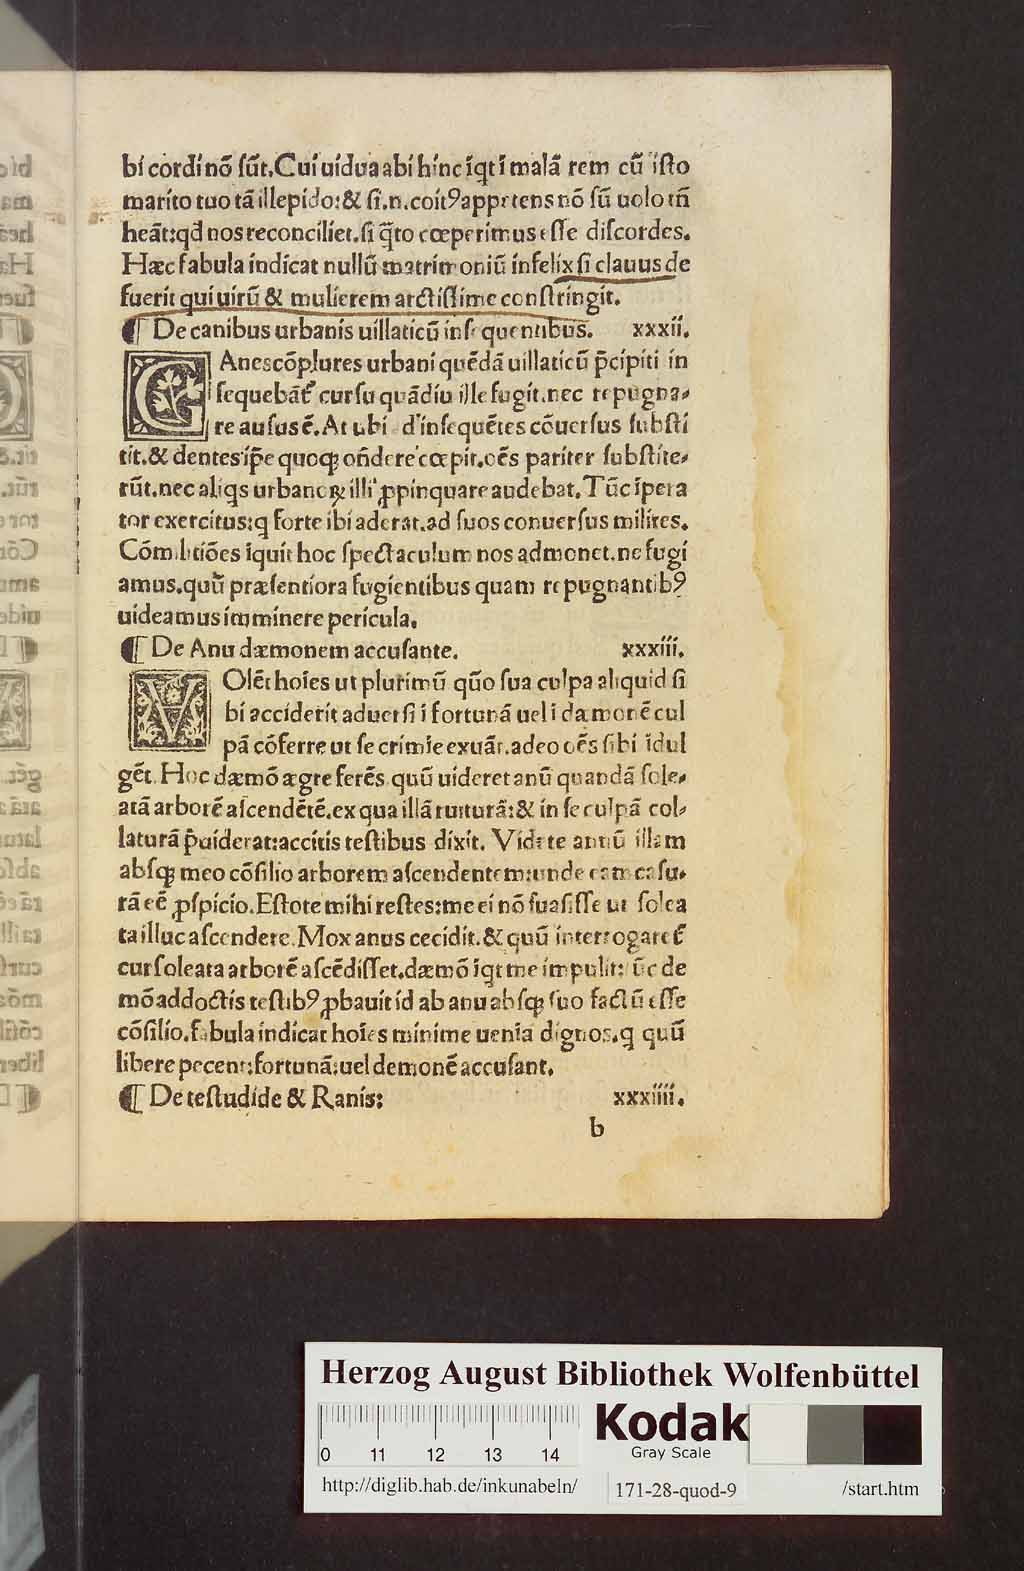 bi cordi nõ sũt. Cui uidua abi hinc īqt ī malã rem cũ isto
marito tuo tã illepido: & si .n. coitꝰ appetens nõ sũ uolo tñ
heãt: qđ nos reconciliet. si q̃to cœperimus esse discordes.
Hæc fabula indicat nullũ matrimoniũ infelix si clauus de
fuerit qui uirũ & mulierem arctissime constringit.
¶ De canibus urbanis uillaticũ insequentibus. xxxii.
CAnes cõplures urbani quẽdã uillaticũ p̃cipiti in
sequebãt̃ cursu quãdiu ille fugit. nec repugna⸗
re ausus ẽ. At ubi ad insequẽtes cõuersus substi
tit. & dentes ip̃e quoqꝫ oñdere cœpit. oẽs pariter substite⸗
rũt. nec aliqs urbanoꝝ illi ꝓpinquare audebat. Tũc īpera
tor exercitus: q forte ibi aderat. ad suos conuersus milites.
Cõmilitiões īquit hoc spectaculum nos admonet. ne fugi
amus. quũ præsentiora fugientibus quam repugnantibꝰ
uideamus imminere pericula.
¶ De Anu dæmonem accusante. xxxiii.
VOlẽt hoĩes ut plurimũ quõ sua culpa aliquid si
bi acciderit aduersi ī fortunã uel ī dæmonẽ cul
pã cõferre ut se crimĩe exuãt. adeo oẽs sibi īdul
gẽt. Hoc dæmõ ægre ferẽs. quũ uideret anũ quandã sole⸗
atã arborẽ ascendẽtẽ. ex qua illã ruiturã: & in se culpã col⸗
laturã p̃uiderat: accitis testibus dixit. Videte annũ illam
absqꝫ meo cõsilio arborem ascendentem: unde eam casu⸗
rã eẽ ꝓspicio. Estote mihi testes: me ei nõ suasisse ut solea
ta illuc ascendere. Mox anus cecidit. & quũ interrogaret̃
cur soleata arborẽ ascẽdisset. dæmõ īqt me impulit: tũc de
mõ addoctis testibꝰ ꝓbauit id ab anu absqꝫ suo factũ esse
cõsilio. fabula indicat hoĩes minime uenia dignos. q quũ
libere peccent: fortunã: uel demonẽ accusant.
¶ De testudide & Ranis: xxxiiii.
b
Herzog August Bibliothek Wolfenbüttel
0 11 12 13 14
Kodak
Gray Scale
http://diglib.hab.de/inkunabeln/ 171-28-quod-9 /start.htm